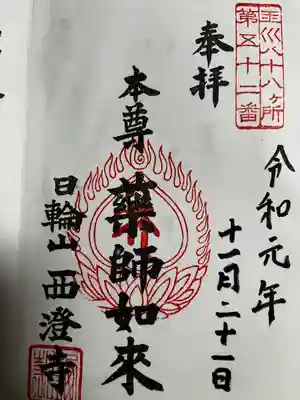 玉川八十八ヶ所
第五十二番
奉拝
令和元年
十一月二十一日
本尊
薬師如來
日輪山
西澄寺